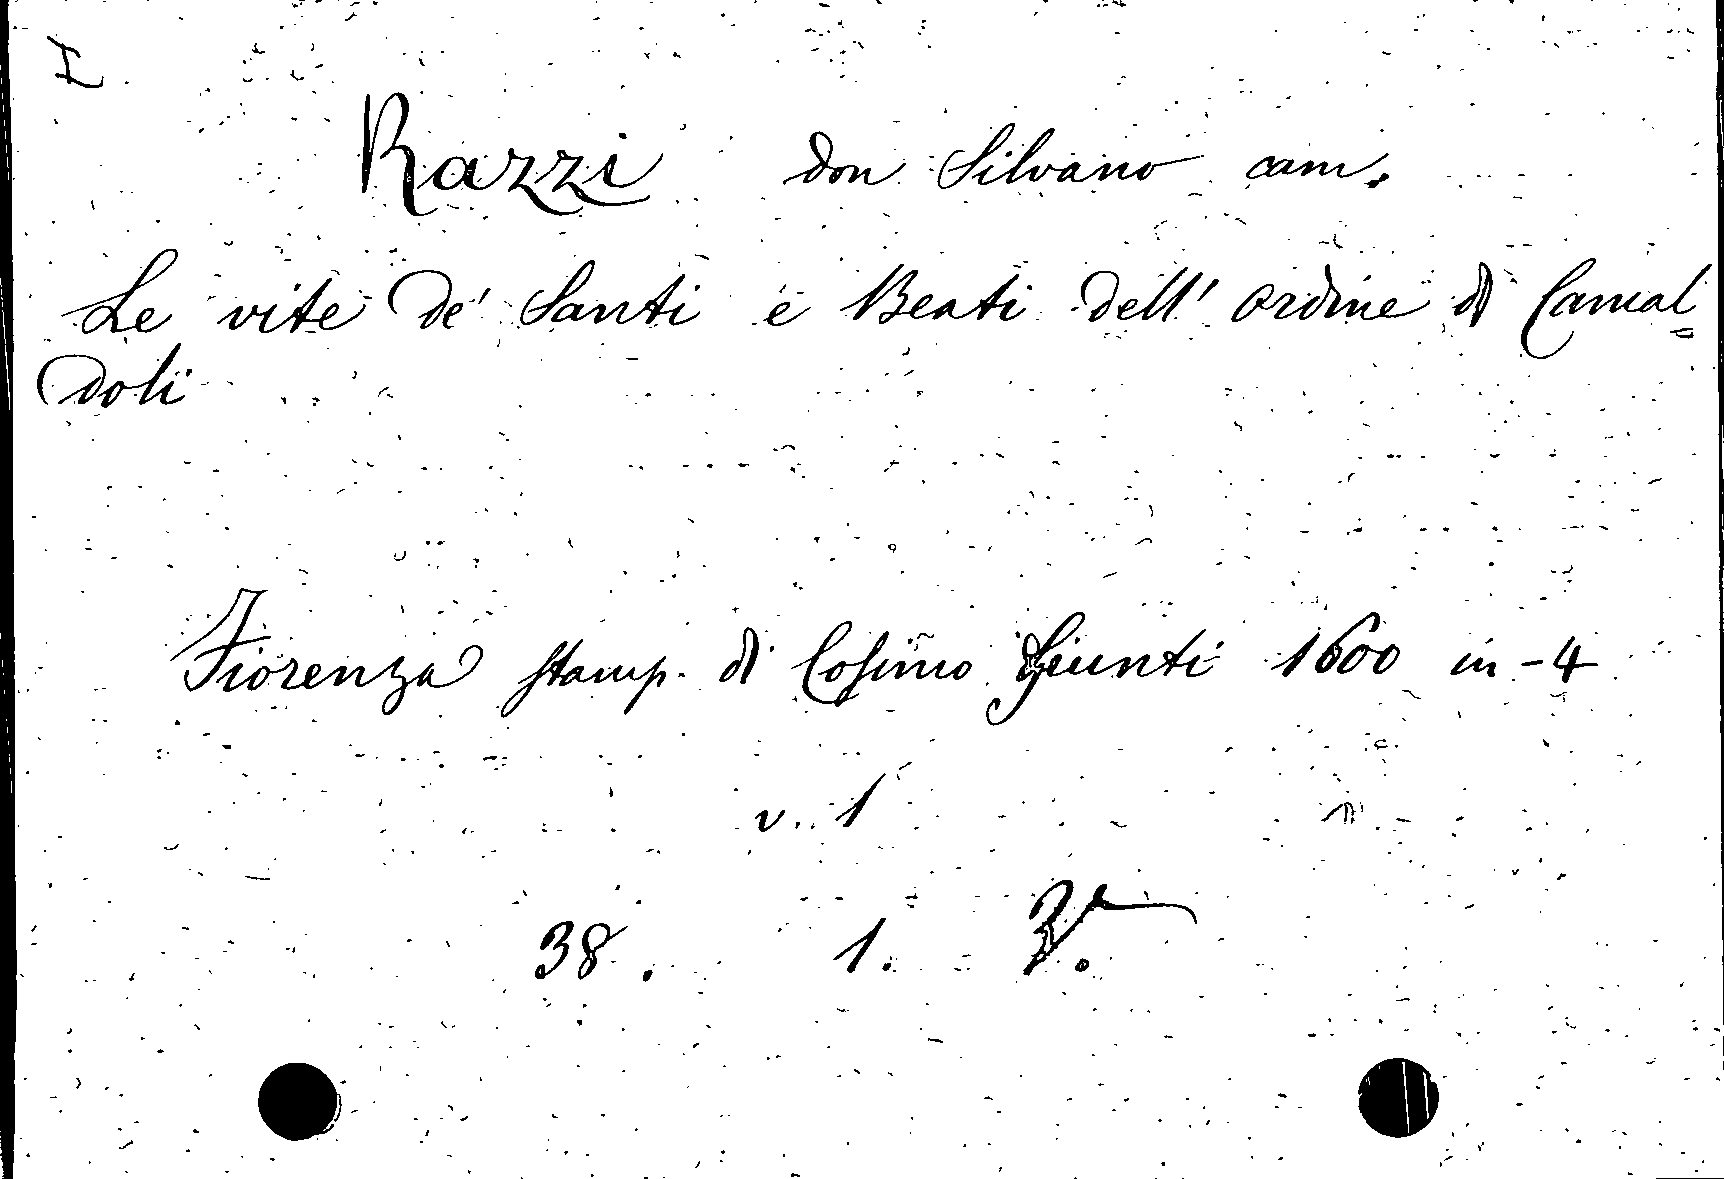 Razzi don Silvano cam.
Le vite de' Santi e Beati dell' ordine di Camal=
doli
Fiorenza stamp. di Cosimo Giunti 1600 in-4
v. 1
38. 1.